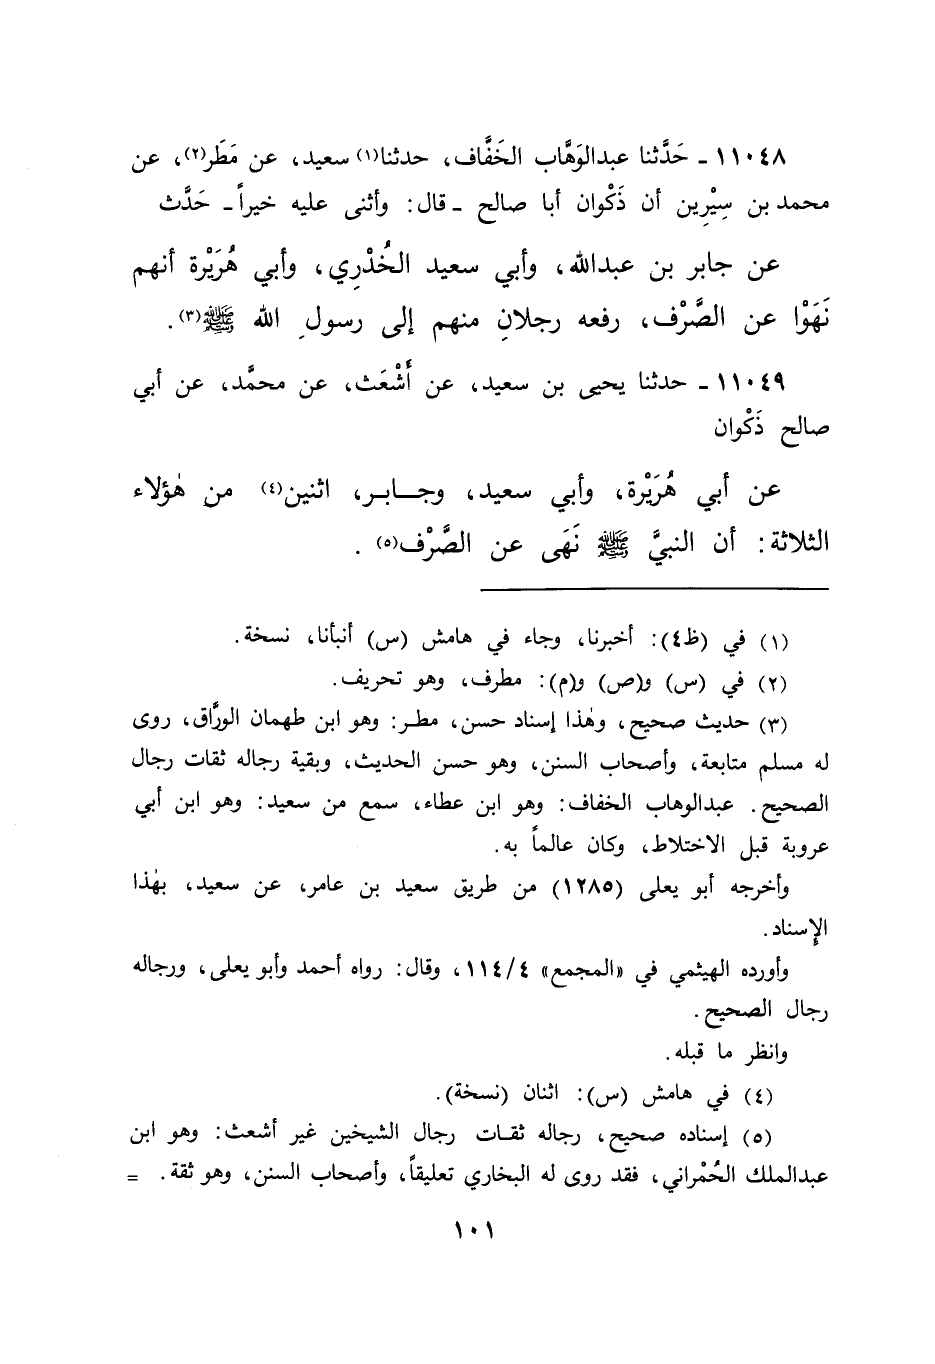 ١١٠٤٨ - حَدَّثنا عبدالوَهَّاب الخَفَّاف، حدثنا(١) سعيد، عن مَطَر(٢)، عن
محمد بن سِيْرِين أن ذَكْوان أبا صالح - قال: وأثنى عليه خيراً - حَدَّث
عن جابر بن عبدالله، وأبي سعيد الخُدْرِي، وأبي هُرَيْرة أنهم
نَهَوْا عن الصَّرْف، رفعه رجلانِ منهم إلى رسولِ الله ﷺ(٣).
١١٠٤٩ - حدثنا يحيى بن سعيد، عن أَشْعَث، عن محمَّد، عن أبي
صالح ذَكْوان
عن أبي هُرَيْرة، وأبي سعيد، وجابر، اثنين(٤) من هٰؤلاء
الثلاثة: أن النبيَّ ﷺ نَهَى عن الصَّرْف(٥).
(١) في (ظ٤): أخبرنا، وجاء في هامش (س) أنبأنا، نسخة.
(٢) في (س) و(ص) و(م): مطرف، وهو تحريف.
(٣) حديث صحيح، وهٰذا إسناد حسن، مطر: وهو ابن طهمان الورَّاق، روى
له مسلم متابعة، وأصحاب السنن، وهو حسن الحديث، وبقية رجاله ثقات رجال
الصحيح. عبدالوهاب الخفاف: وهو ابن عطاء، سمع من سعيد: وهو ابن أبي
عروبة قبل الاختلاط، وكان عالماً به.
وأخرجه أبو يعلى (١٢٨٥) من طريق سعيد بن عامر، عن سعيد، بهٰذا
الإسناد.
وأورده الهيثمي في «المجمع» ١١٤/٤، وقال: رواه أحمد وأبو يعلى، ورجاله
رجال الصحيح.
وانظر ما قبله.
(٤) في هامش (س): اثنان (نسخة).
(٥) إسناده صحيح، رجاله ثقات رجال الشيخين غير أشعث: وهو ابن
عبدالملك الحُمْراني، فقد روى له البخاري تعليقاً، وأصحاب السنن، وهو ثقة. =
١٠١